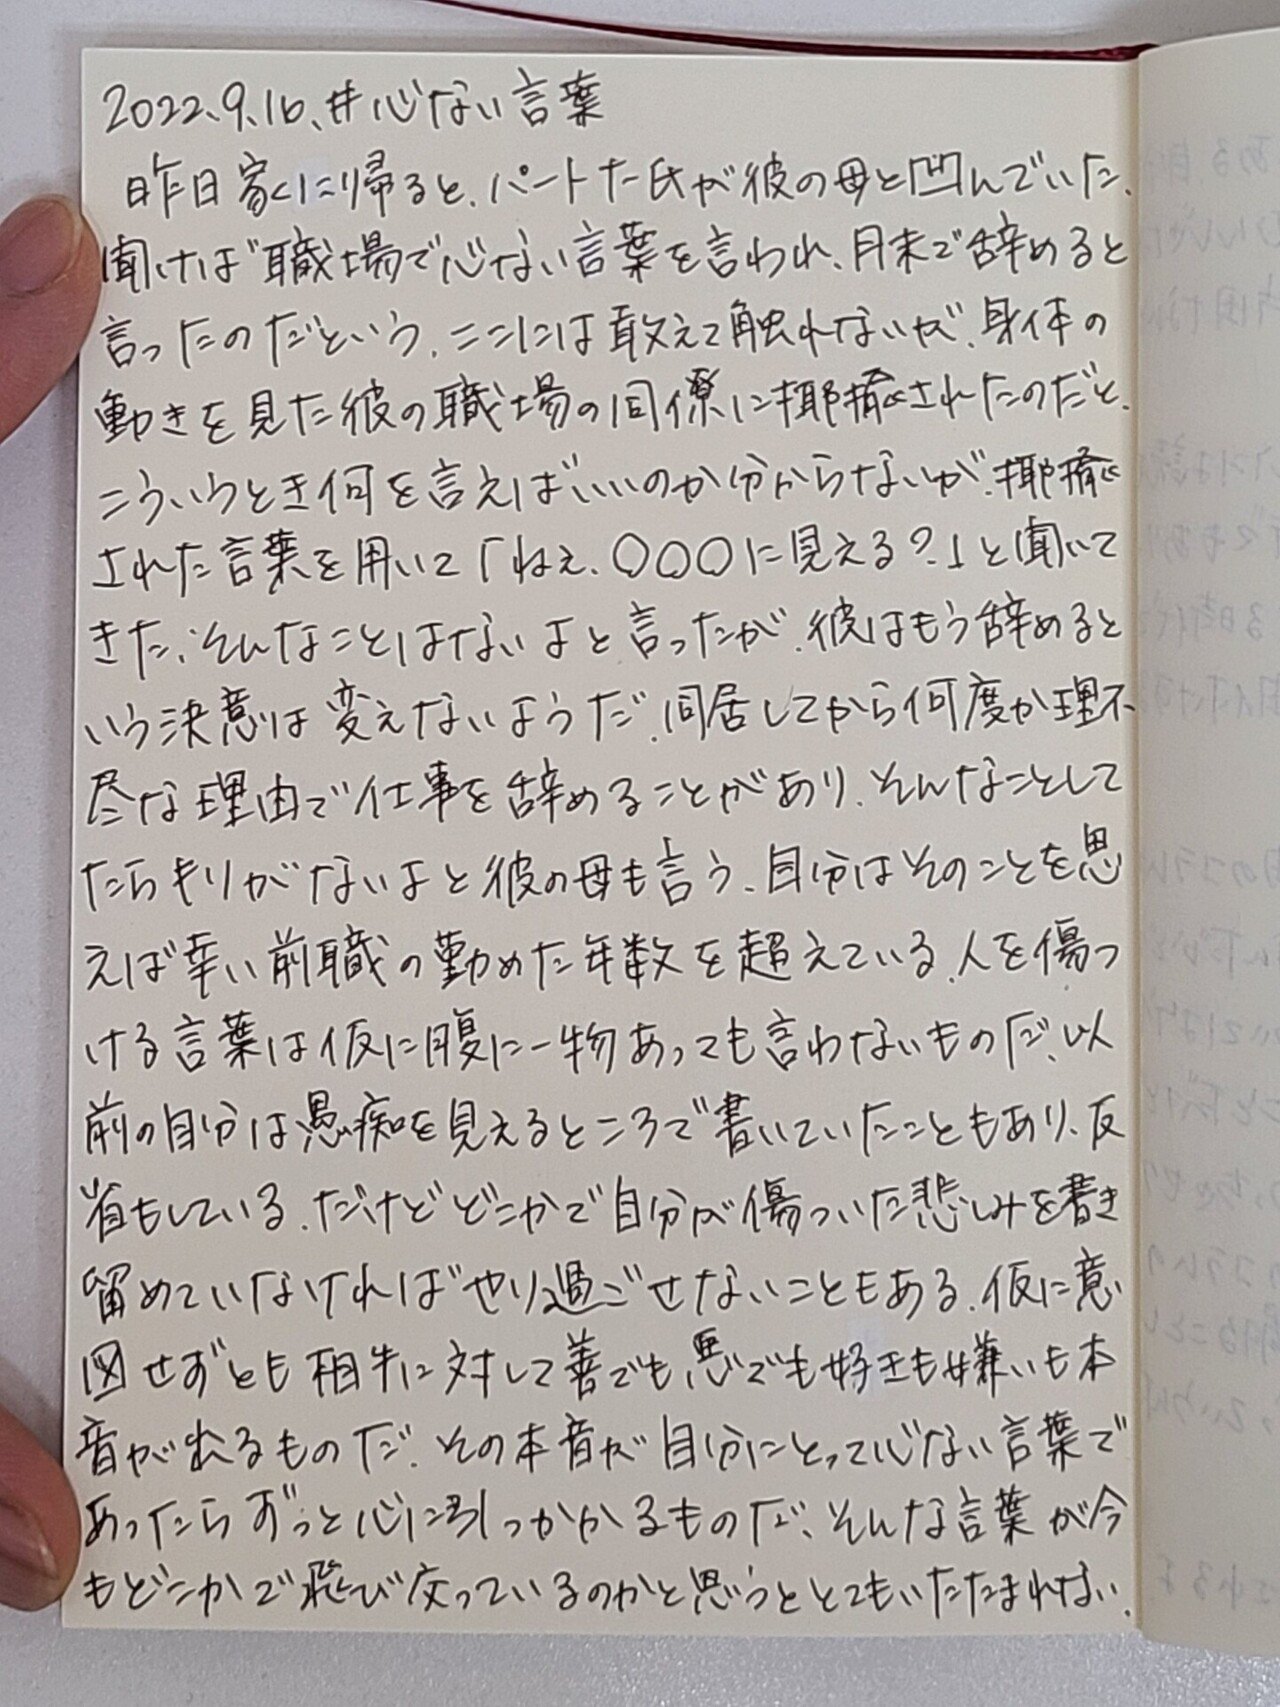 2022.9.16、#心ない言葉
昨日家に帰ると、パートナ氏が彼の母と凹んでいた、
聞けば職場で心ない言葉を言われ、月末で辞めると
言ったのだという、ここには敢えて触れないが、身体の
動きを見た彼の職場の同僚に揶揄されたのだと、
こういうとき何を言えばいいのか分からないが、揶揄
された言葉を用いて「ねえ、〇〇〇に見える?」と聞いて
きた、そんなことはないよと言ったが、彼はもう辞めると
いう決意は変えないようだ、同居してから何度か理不
尽な理由で仕事を辞めることがあり、そんなことして
たらキリがないよと彼の母も言う、自分はそのことを思
えば幸い前職の勤めた年数を超えている、人を傷つ
ける言葉は仮に腹に一物あっても言わないものだ、以
前の自分は愚痴を見えるところで書いていたこともあり、反
省もしている、だけどどこかで自分が傷ついた悲しみを書き
留めていなければやり過ごせないこともある、仮に意
図せずとも相手に対して善でも悪でも好きも嫌いも本
音が出るものだ、その本音が自分にとって心ない言葉で
あったらずっと心に引っかかるものだ、そんな言葉が今
もどこかで飛び交っているのかと思うととてもいたたまれない、